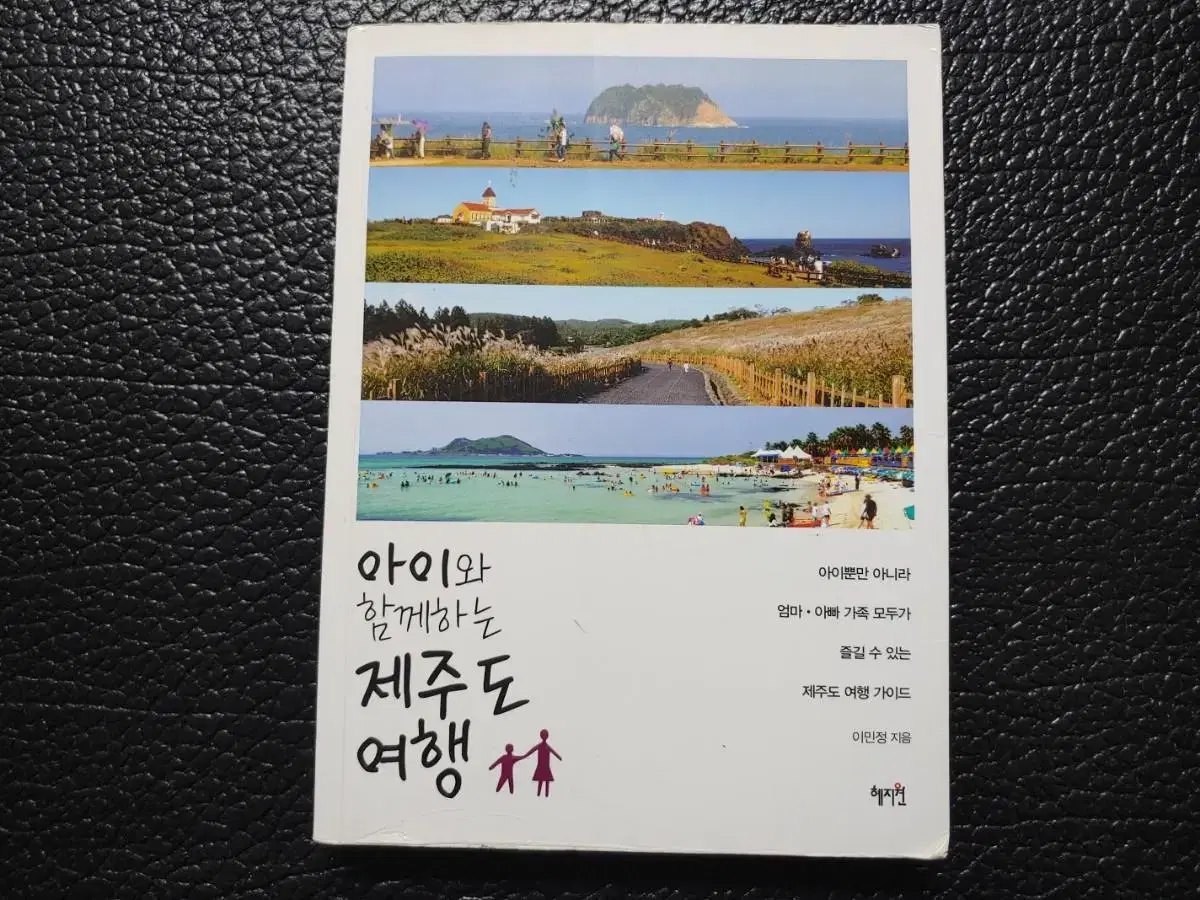 아이와
함께하는
제주도
여행
아이뿐만 아니라
엄마·아빠 가족 모두가
즐길 수 있는
제주도 여행 가이드
이민정 지음
혜지원